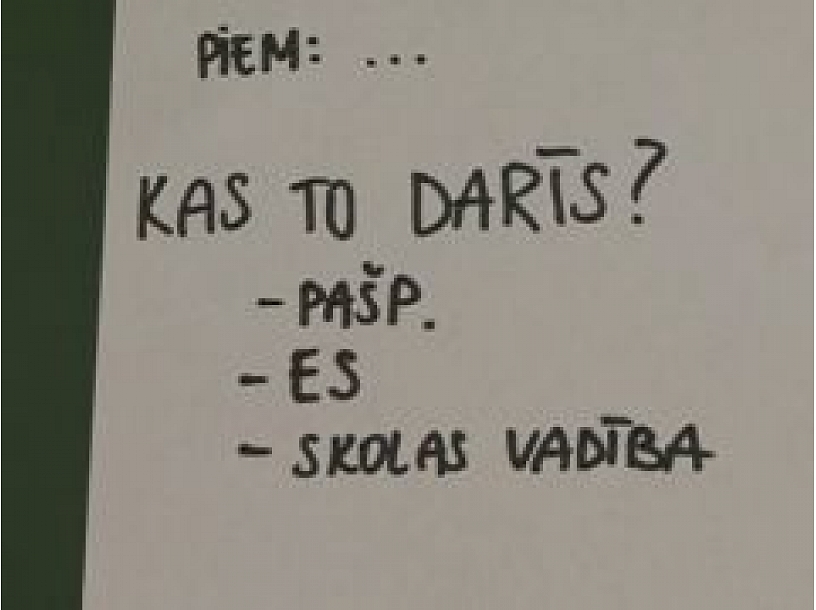 PIEM: ...
KAS TO DARĪS?
- PAŠP.
- ES
- SKOLAS VADĪBA